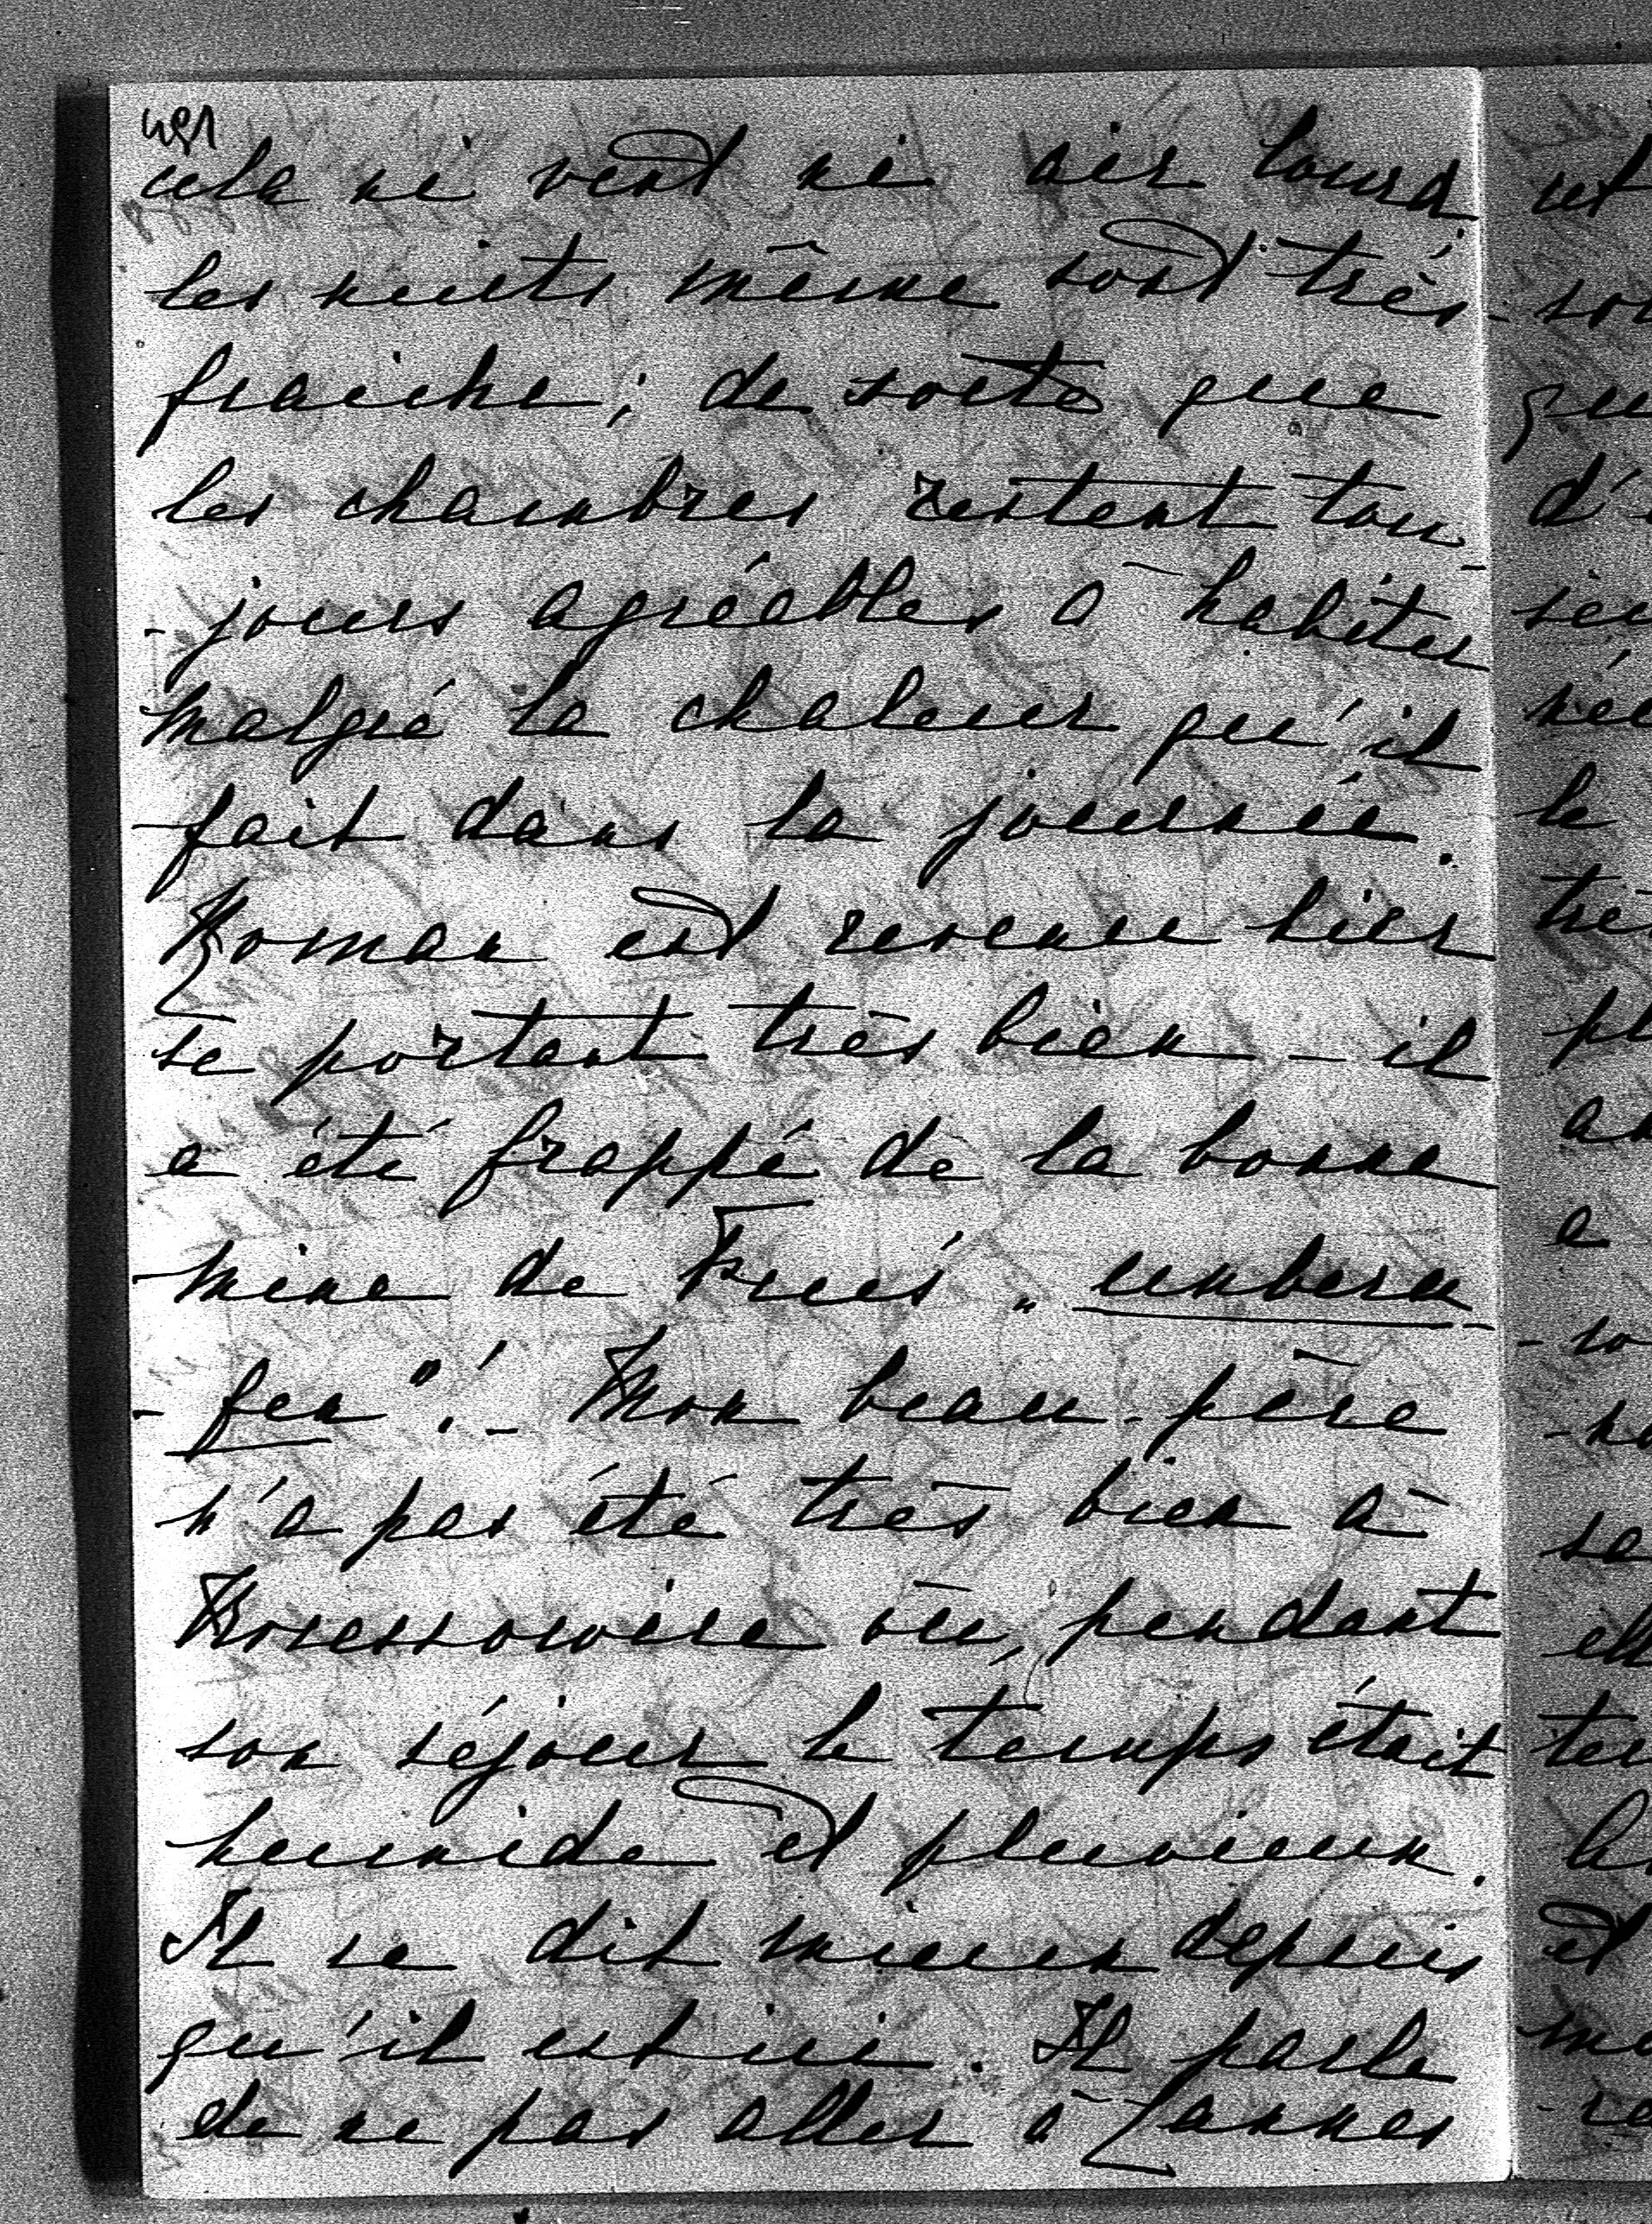 cela ni vent ni air lourd
les nuits même sont très
fraiche; de sorte que
les chambres restent tou-
-jours agréables à habiter
malgré la chaleur qu'il
fait dans la journée.
Roman est revenu hier
se portant très bien - il
a été frappé de la bonne
mine de "unberu-
-fen"!- Mon beau-père
n'a pas été très bien à
où, pendant
son séjour le temps était
humide et pluvieux.
Il se dit mieux depuis
qu'il est ici. Il parle
de ne pas aller à Cannes